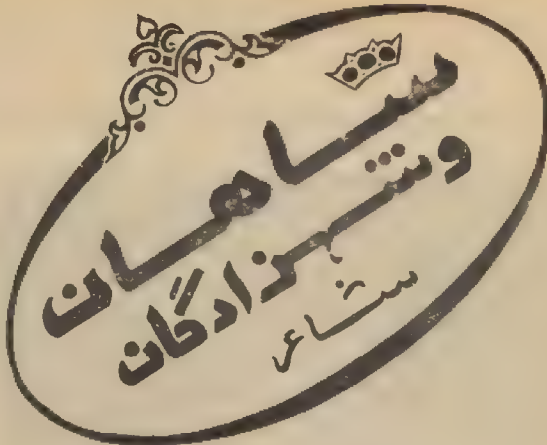 شاهان
وشهزادگان
شاعر